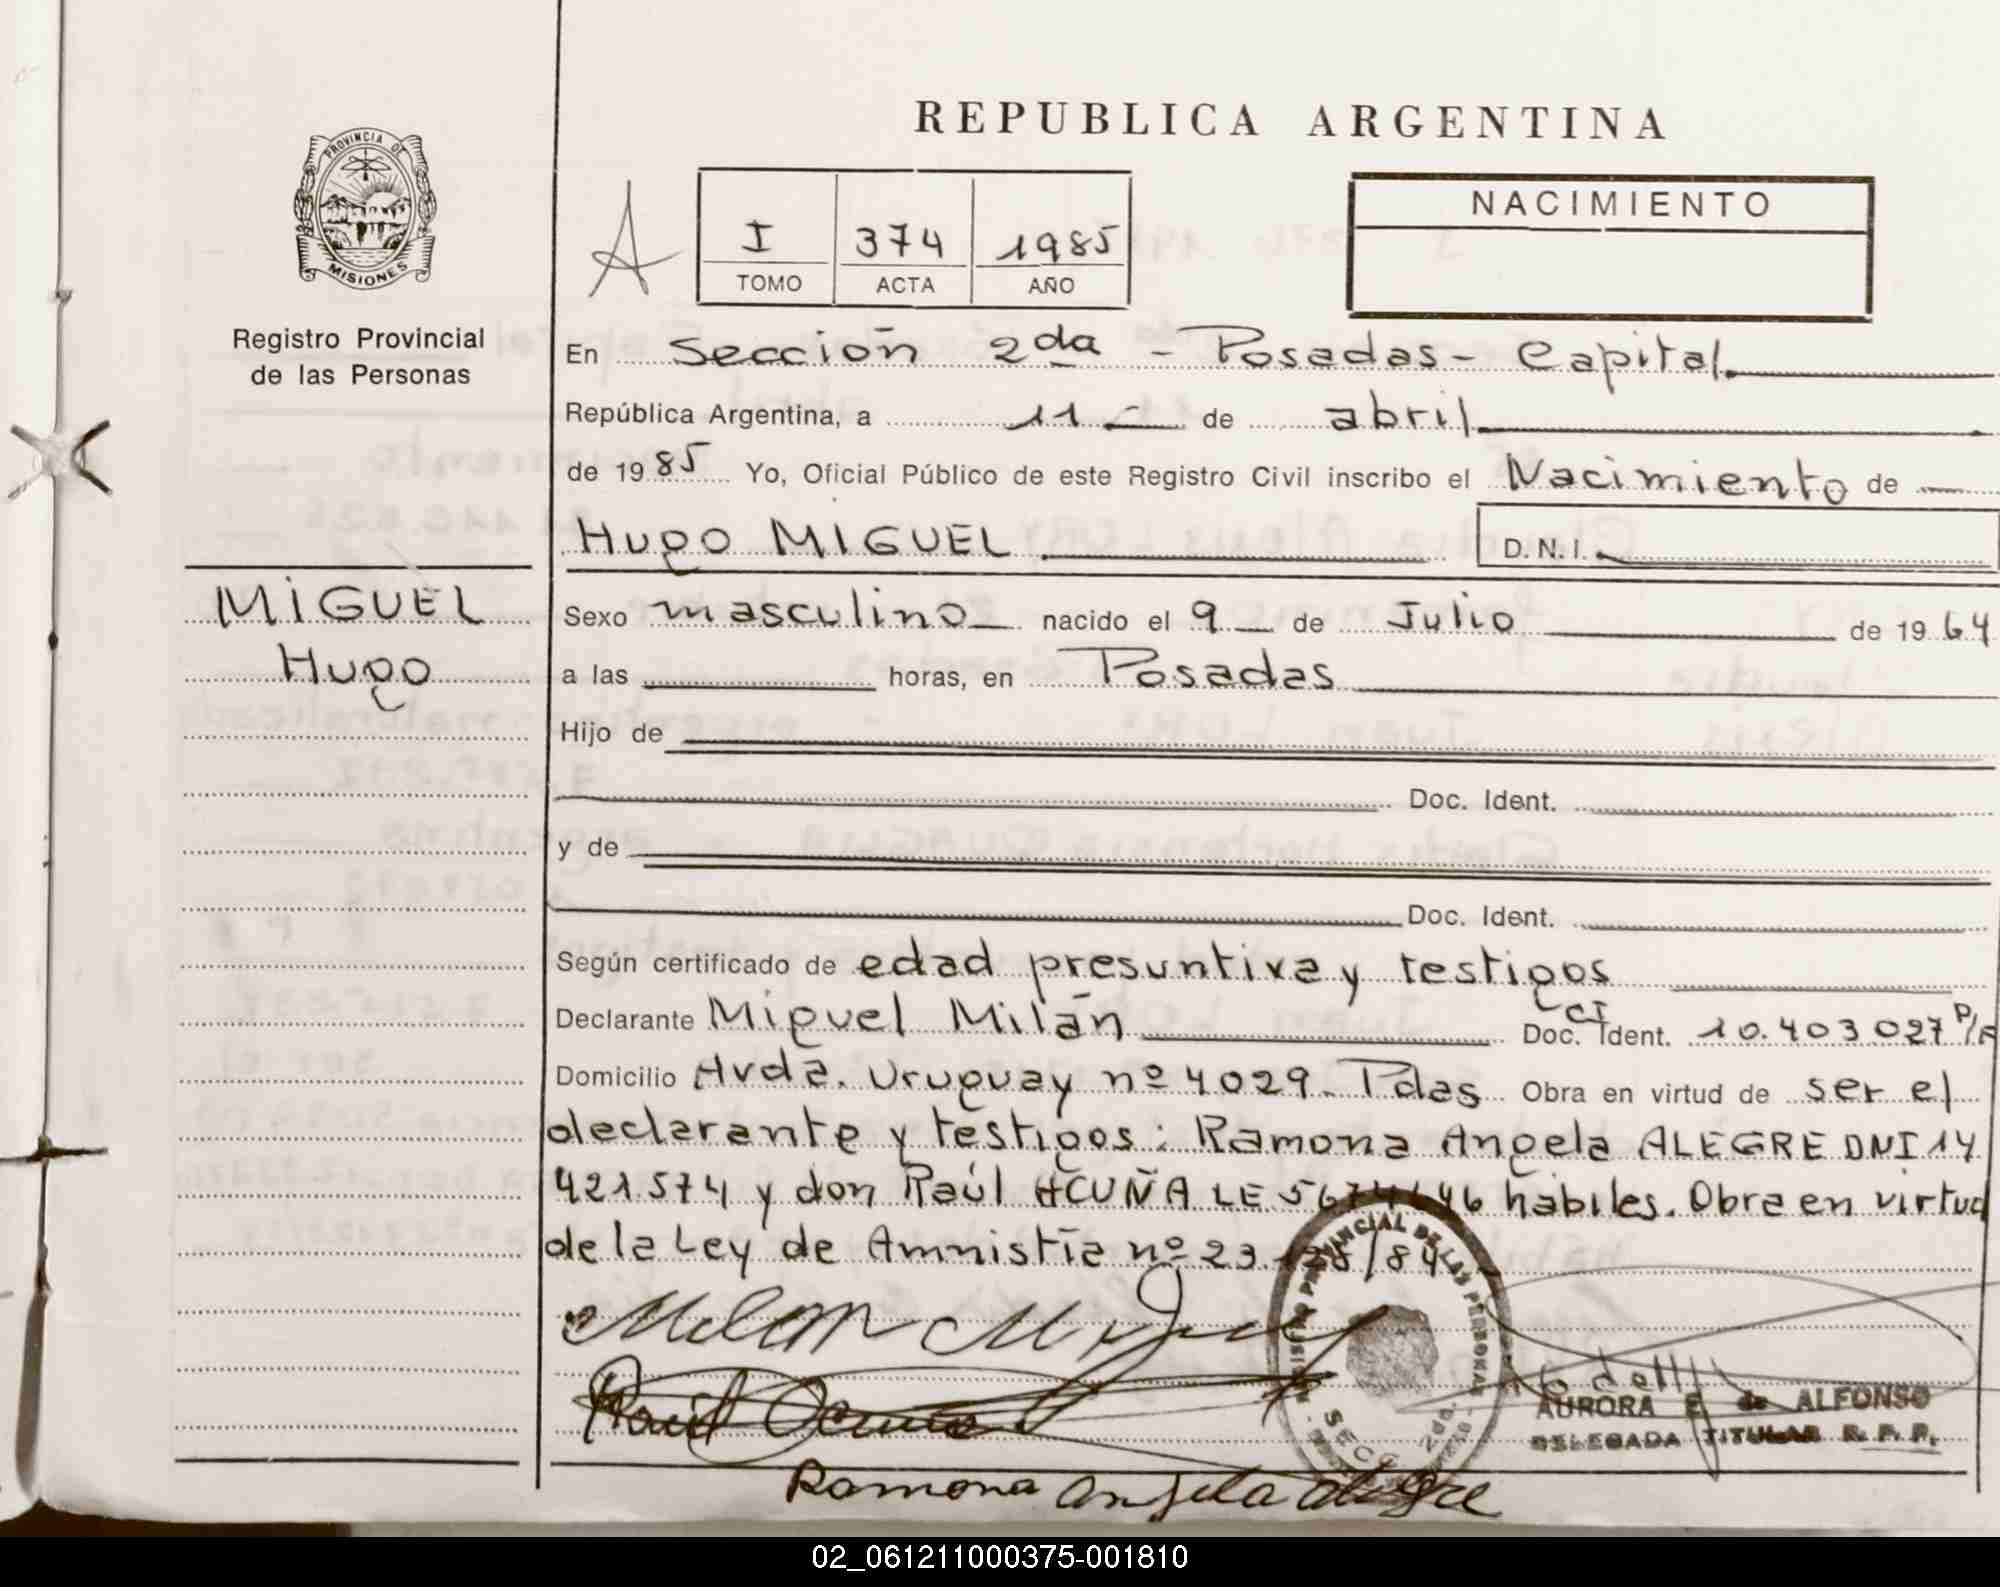 REPUBLICA ARGENTINA
PROVINCIA DE
MISIONES
Registro Provincial
de las Personas
A
I 374 1985
TOMO ACTA AÑO
NACIMIENTO
En Sección 2da - Posadas - Capital
República Argentina, a 11 - de abril
de 1985 Yo, Oficial Público de este Registro Civil inscribo el Nacimiento de
Hugo MIGUEL D.N.I.
MIGUEL
Hugo
Sexo masculino nacido el 9 de Julio de 1964
a las horas, en Posadas
Hijo de
Doc. Ident.
y de
Doc. Ident.
Según certificado de edad presuntiva y testigos
Declarante Miguel Milán Doc. Ident. CI 10.403027 P/A
Domicilio Avda. Uruguay nº 4029. Pdas Obra en virtud de ser el
declarante y testigos: Ramona Angela ALEGRE DNI 14
421.574 y don Raúl ACUÑA LE habiles. Obra en virtud
de la Ley de Amnistía nº 23.128/84
Milan Miguel
REGISTRO PROVINCIAL DE LAS PERSONAS
SECC. 2da.
Raul Acuña
AURORA E. de ALFONSO
DELEGADA TITULAR R. P. P.
Ramona Angela Alegre
02_061211000375-001810